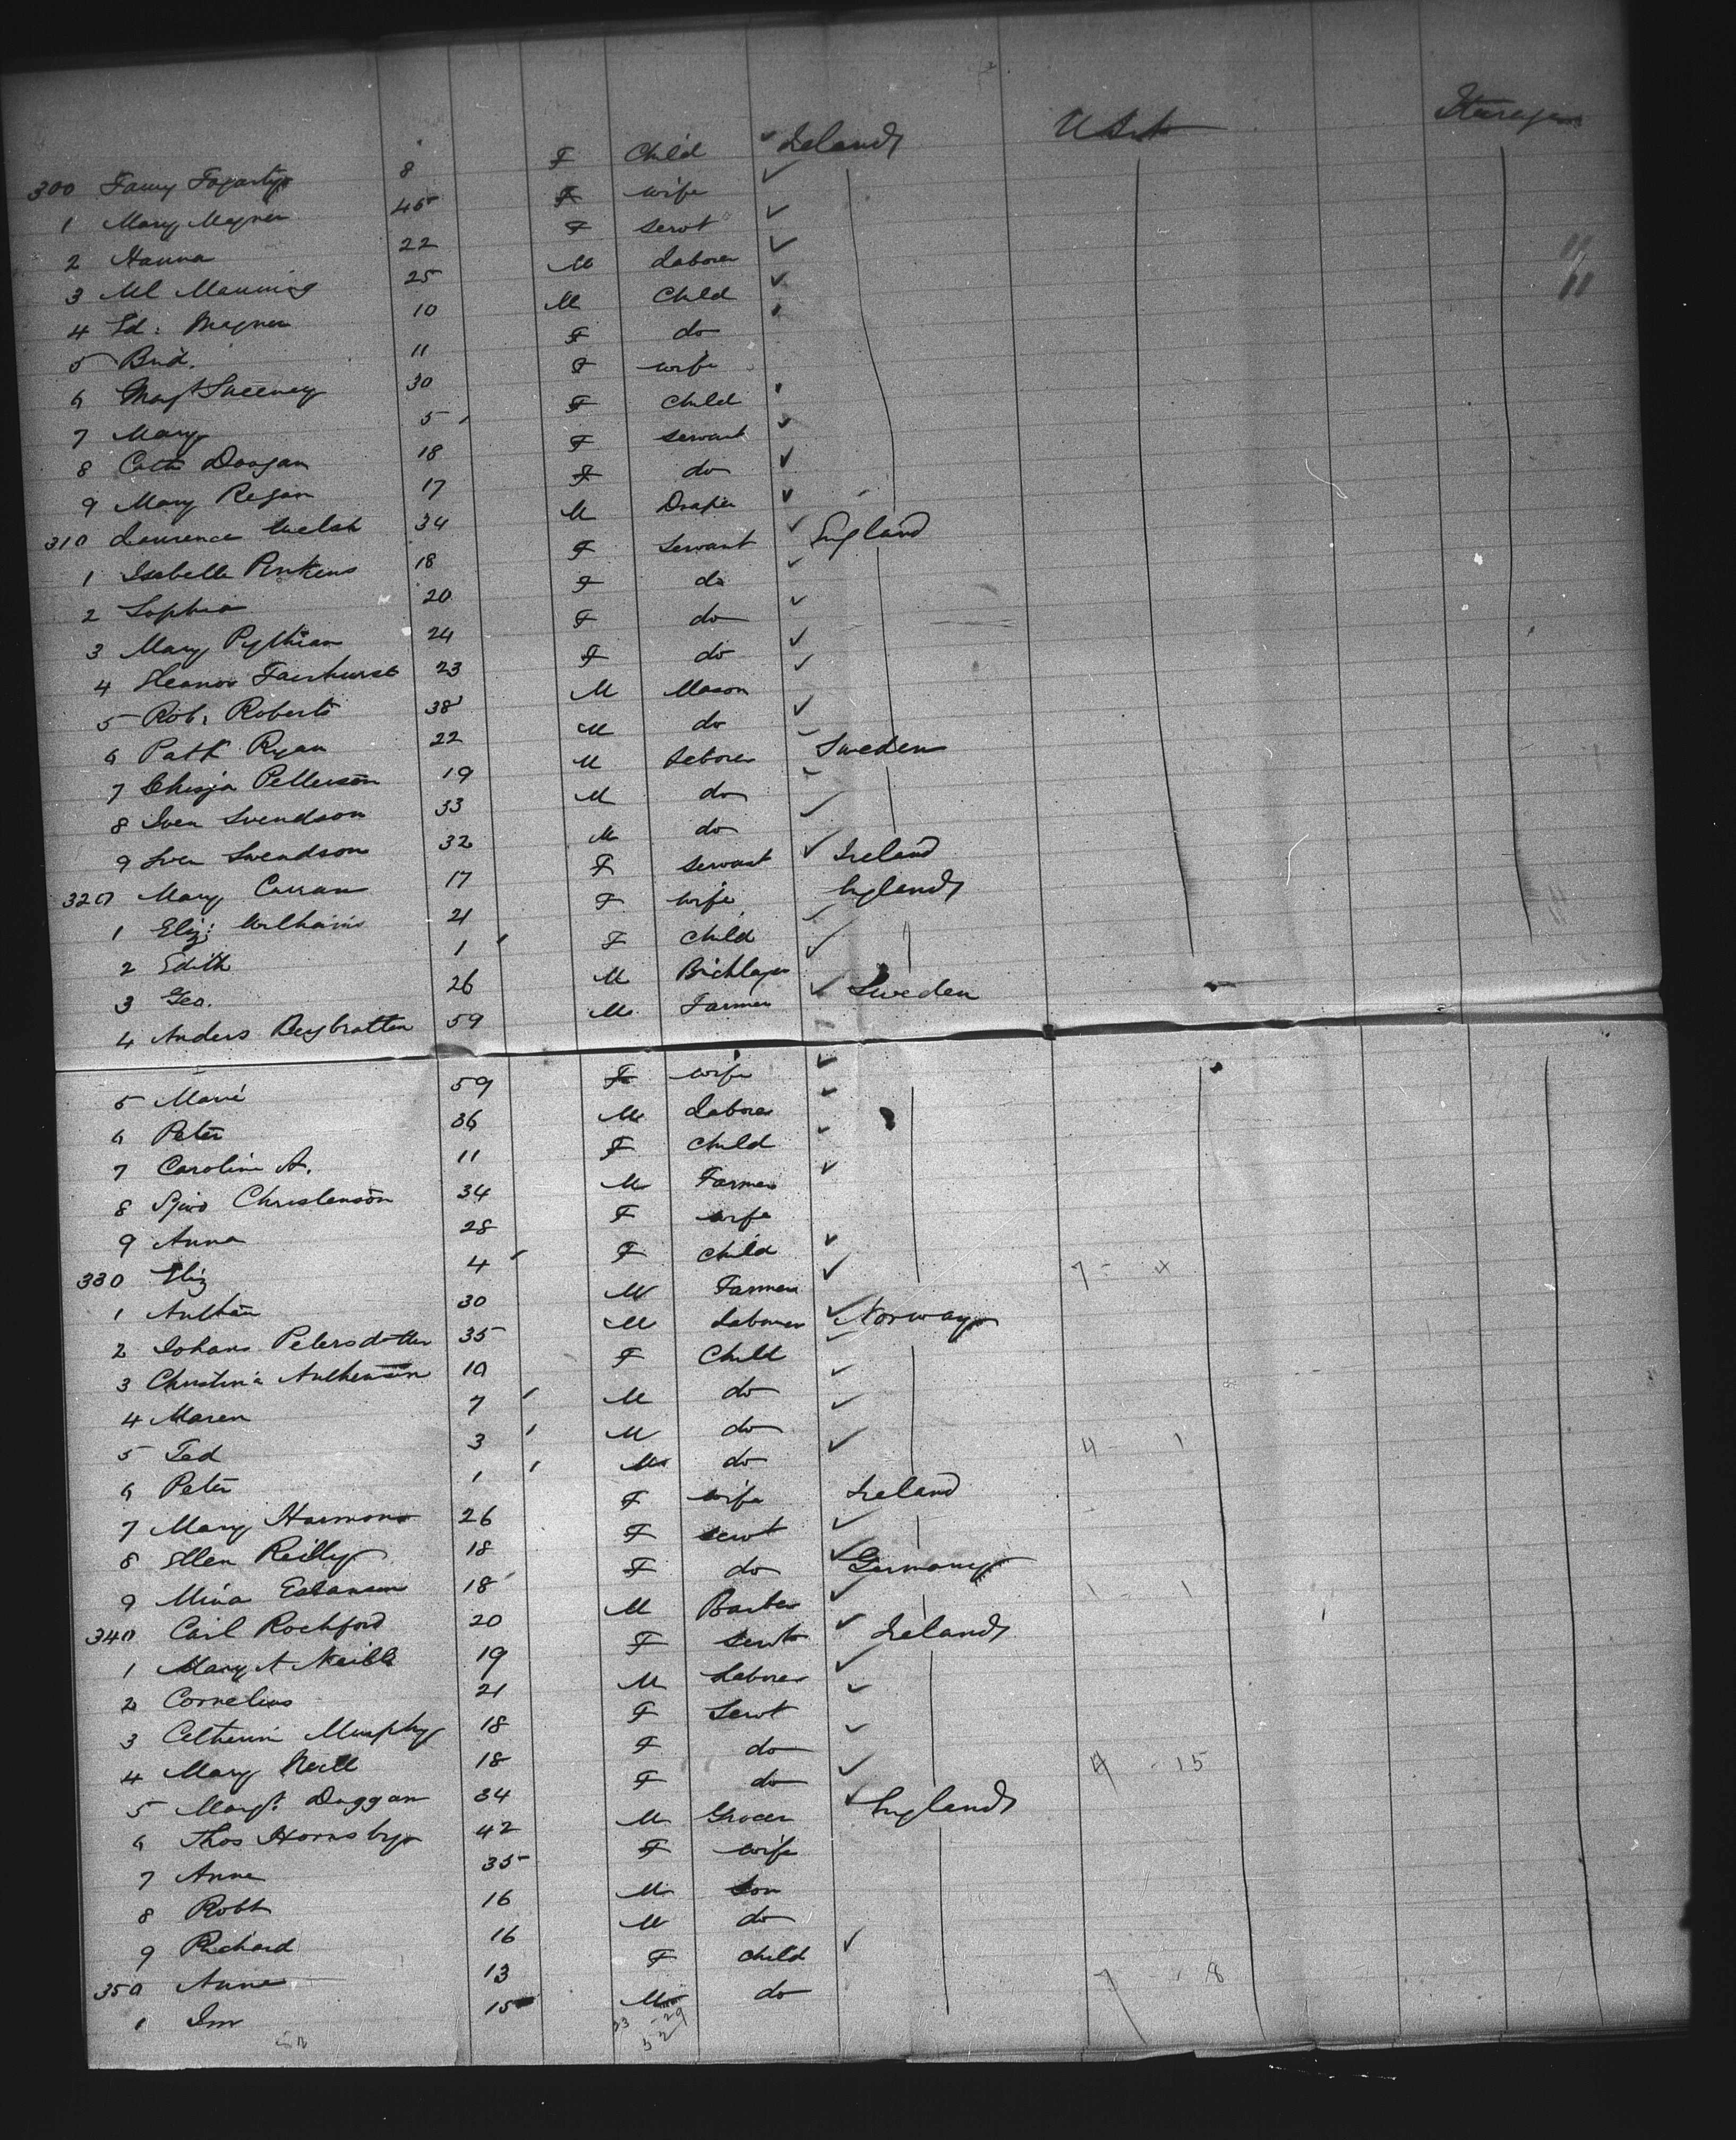 300 Fanny Fogarty 8 F Child Ireland USA Steerage
1 Mary Magner 45 F wife
2 Hanna 22 F servt
3 Ml Manning 25 M Laborer
4 Ed: Magner 10 M Child
5 Brid. 11 F do
6 Margt Sweeney 30 F wife
7 Mary 5 F Child
8 Cath Doogan 18 F servant
9 Mary Regan 17 F do
310 Laurence Welsh 34 M Draper
1 Isabella Pinkens 18 F Servant England
2 Sophia 20 F do
3 Mary Pythian 24 F do
4 Eleanor Fairhurst 23 F do
5 Rob. Roberts 38 M Mason
6 Patk Ryan 22 M do
7 Pettersen 19 M Laborer Sweden
8 Sven Svendson 33 M do
9 Sven Svendson 32 M do
320 Mary Curran 17 F servant Ireland
1 Eliz: Williams 21 F wife England
2 Edith 1 F Child
3 Geo. 26 M Bricklayer
4 Anders 59 M Farmer Sweden
5 Marie 59 F wife
6 Peter 36 M Laborer
7 Carolin A. 11 F Child
8 Christenson 34 M Farmer
9 Anna 28 F wife
330 Eliz 4 F Child 7 - x
1 30 M Farmer
2 Johans Petersdotter 35 M Laborer Norway
3 Christina 10 F Child
4 Maren 7 M do
5 Ted 3 M do 4 - 1
6 Peter 1 M do
7 Mary Harmon 26 F wife Ireland
8 Ellen Reilly 18 F servt
9 Mina 18 F do Germany 1 - 1
340 Carl Rochford 20 M Barber
1 Mary A 19 F Servt Ireland
2 Cornelius 21 M Laborer
3 Murphy 18 F Servt
4 Mary Neill 18 F do 4 - 15
5 Margt. Duggan 34 F do
6 Thos Hornsby 42 M Grocer England
7 Anne 35 F wife
8 Robt 16 M Son
9 Richard 16 M do
350 Anne 13 F Child 7 - 8
1 15 M do